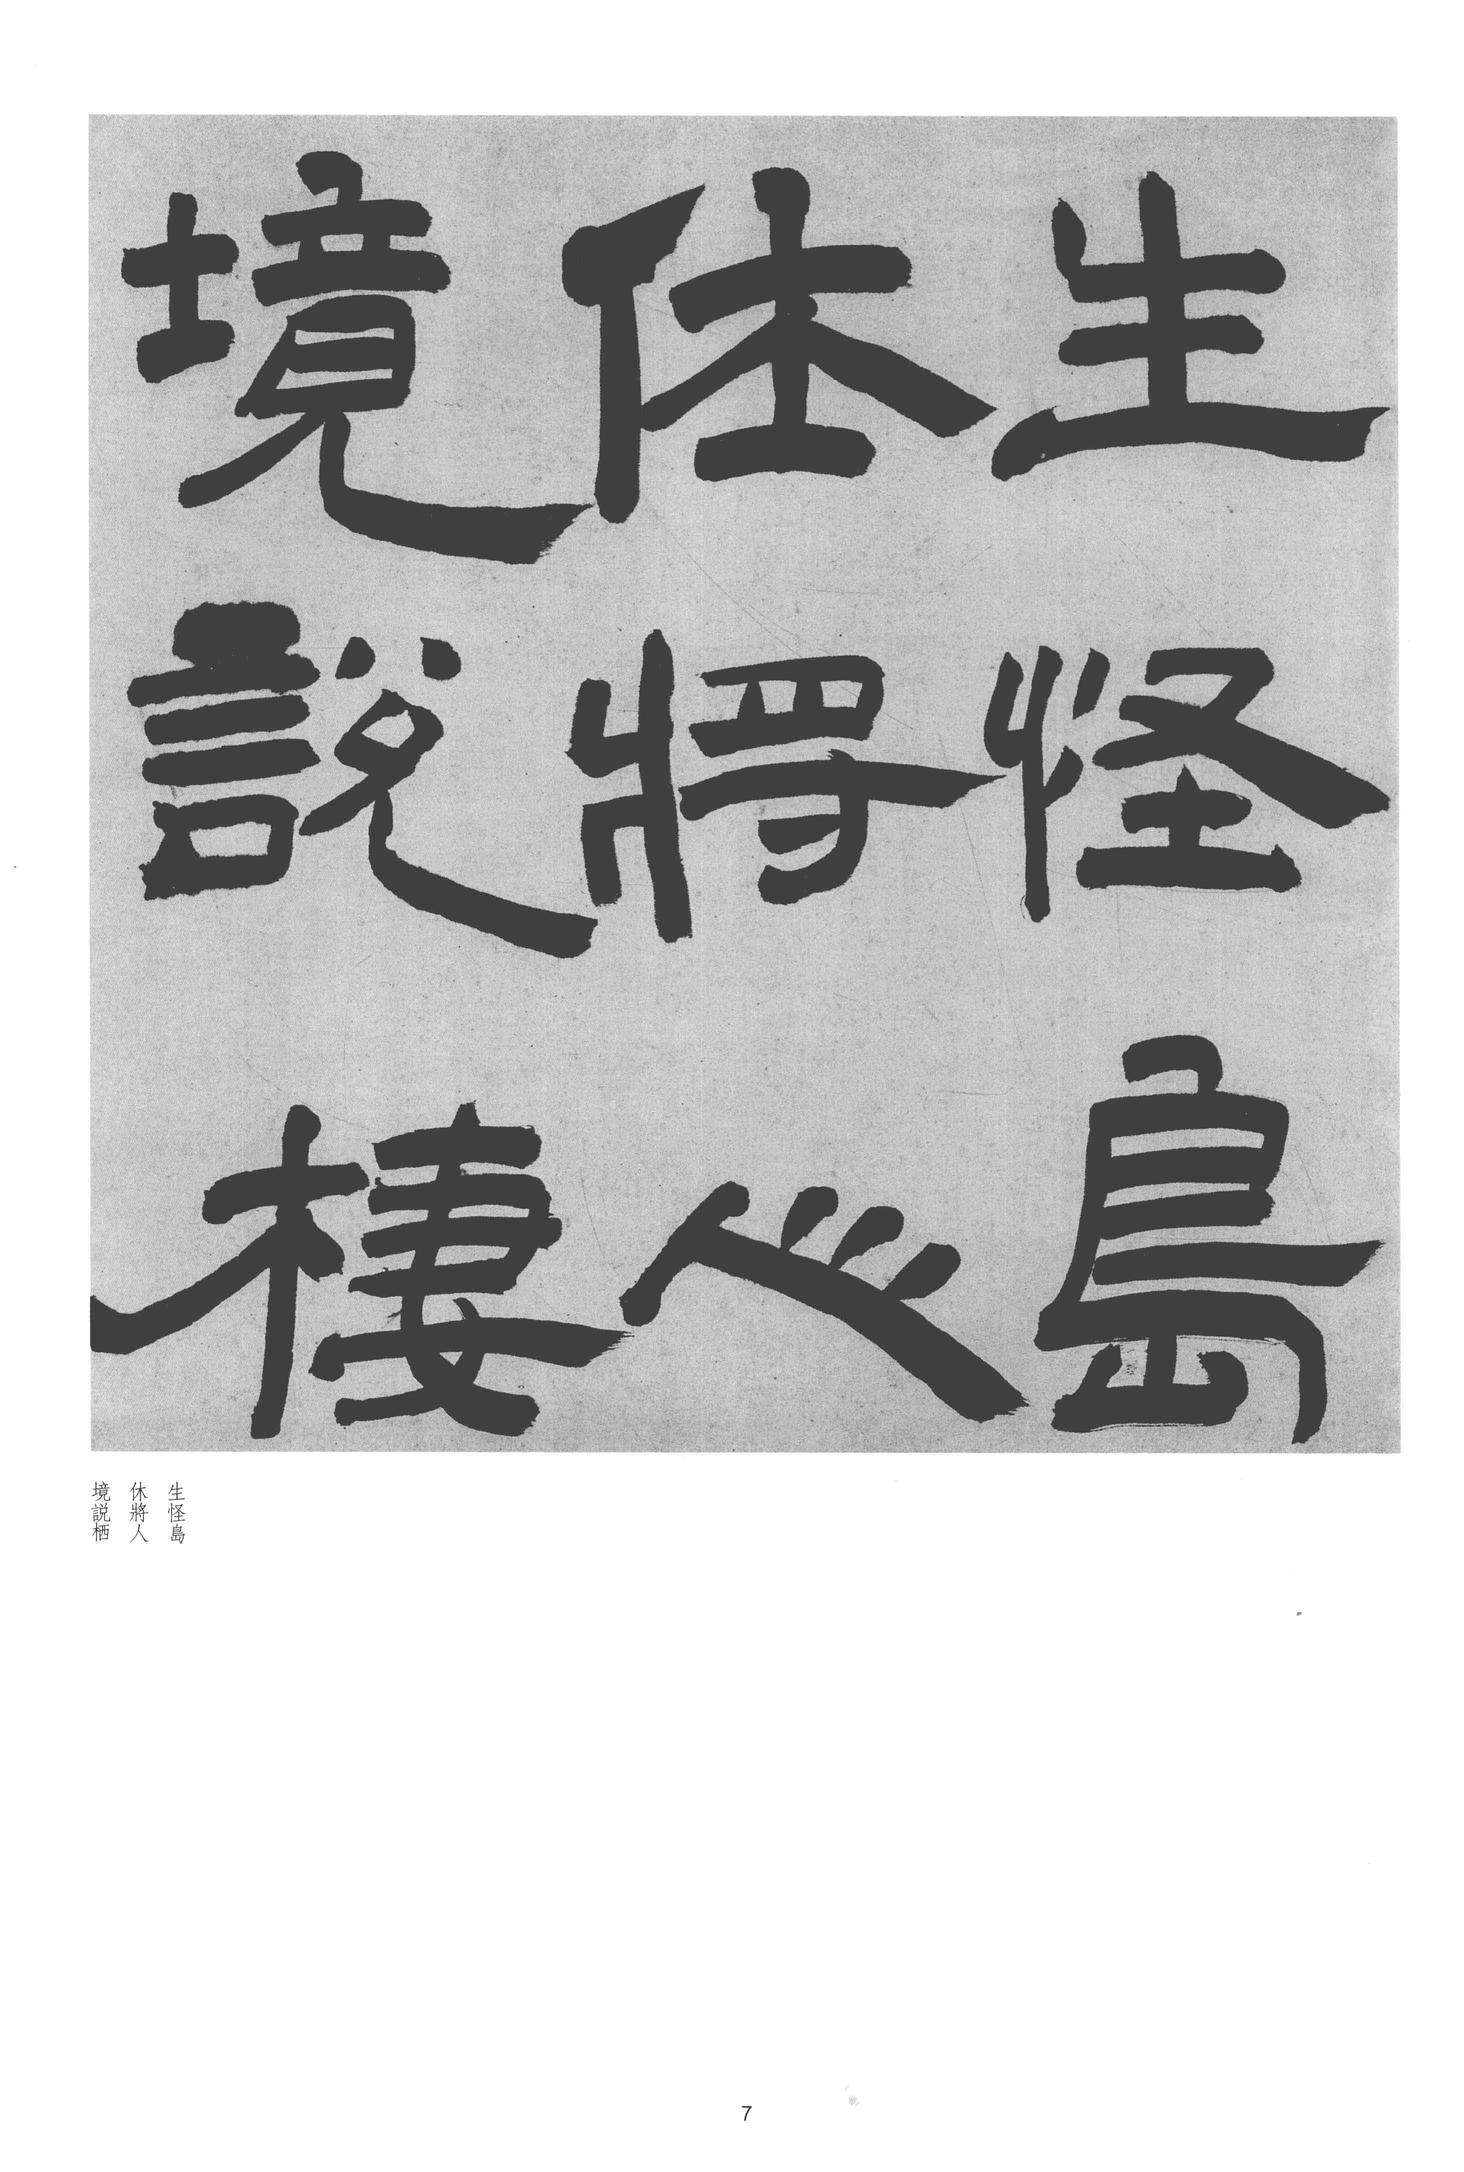 生怪島
休將人
境説棲
生怪島
休將人
境説栖
7